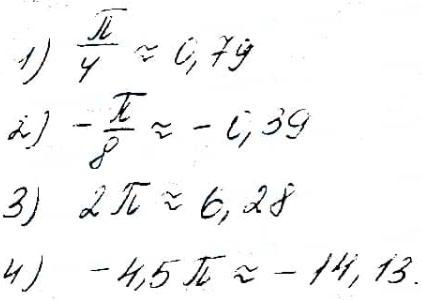 1) π/4 ≈ 0,79
2) -π/8 ≈ -0,39
3) 2π ≈ 6,28
4) -4,5π ≈ -14,13.